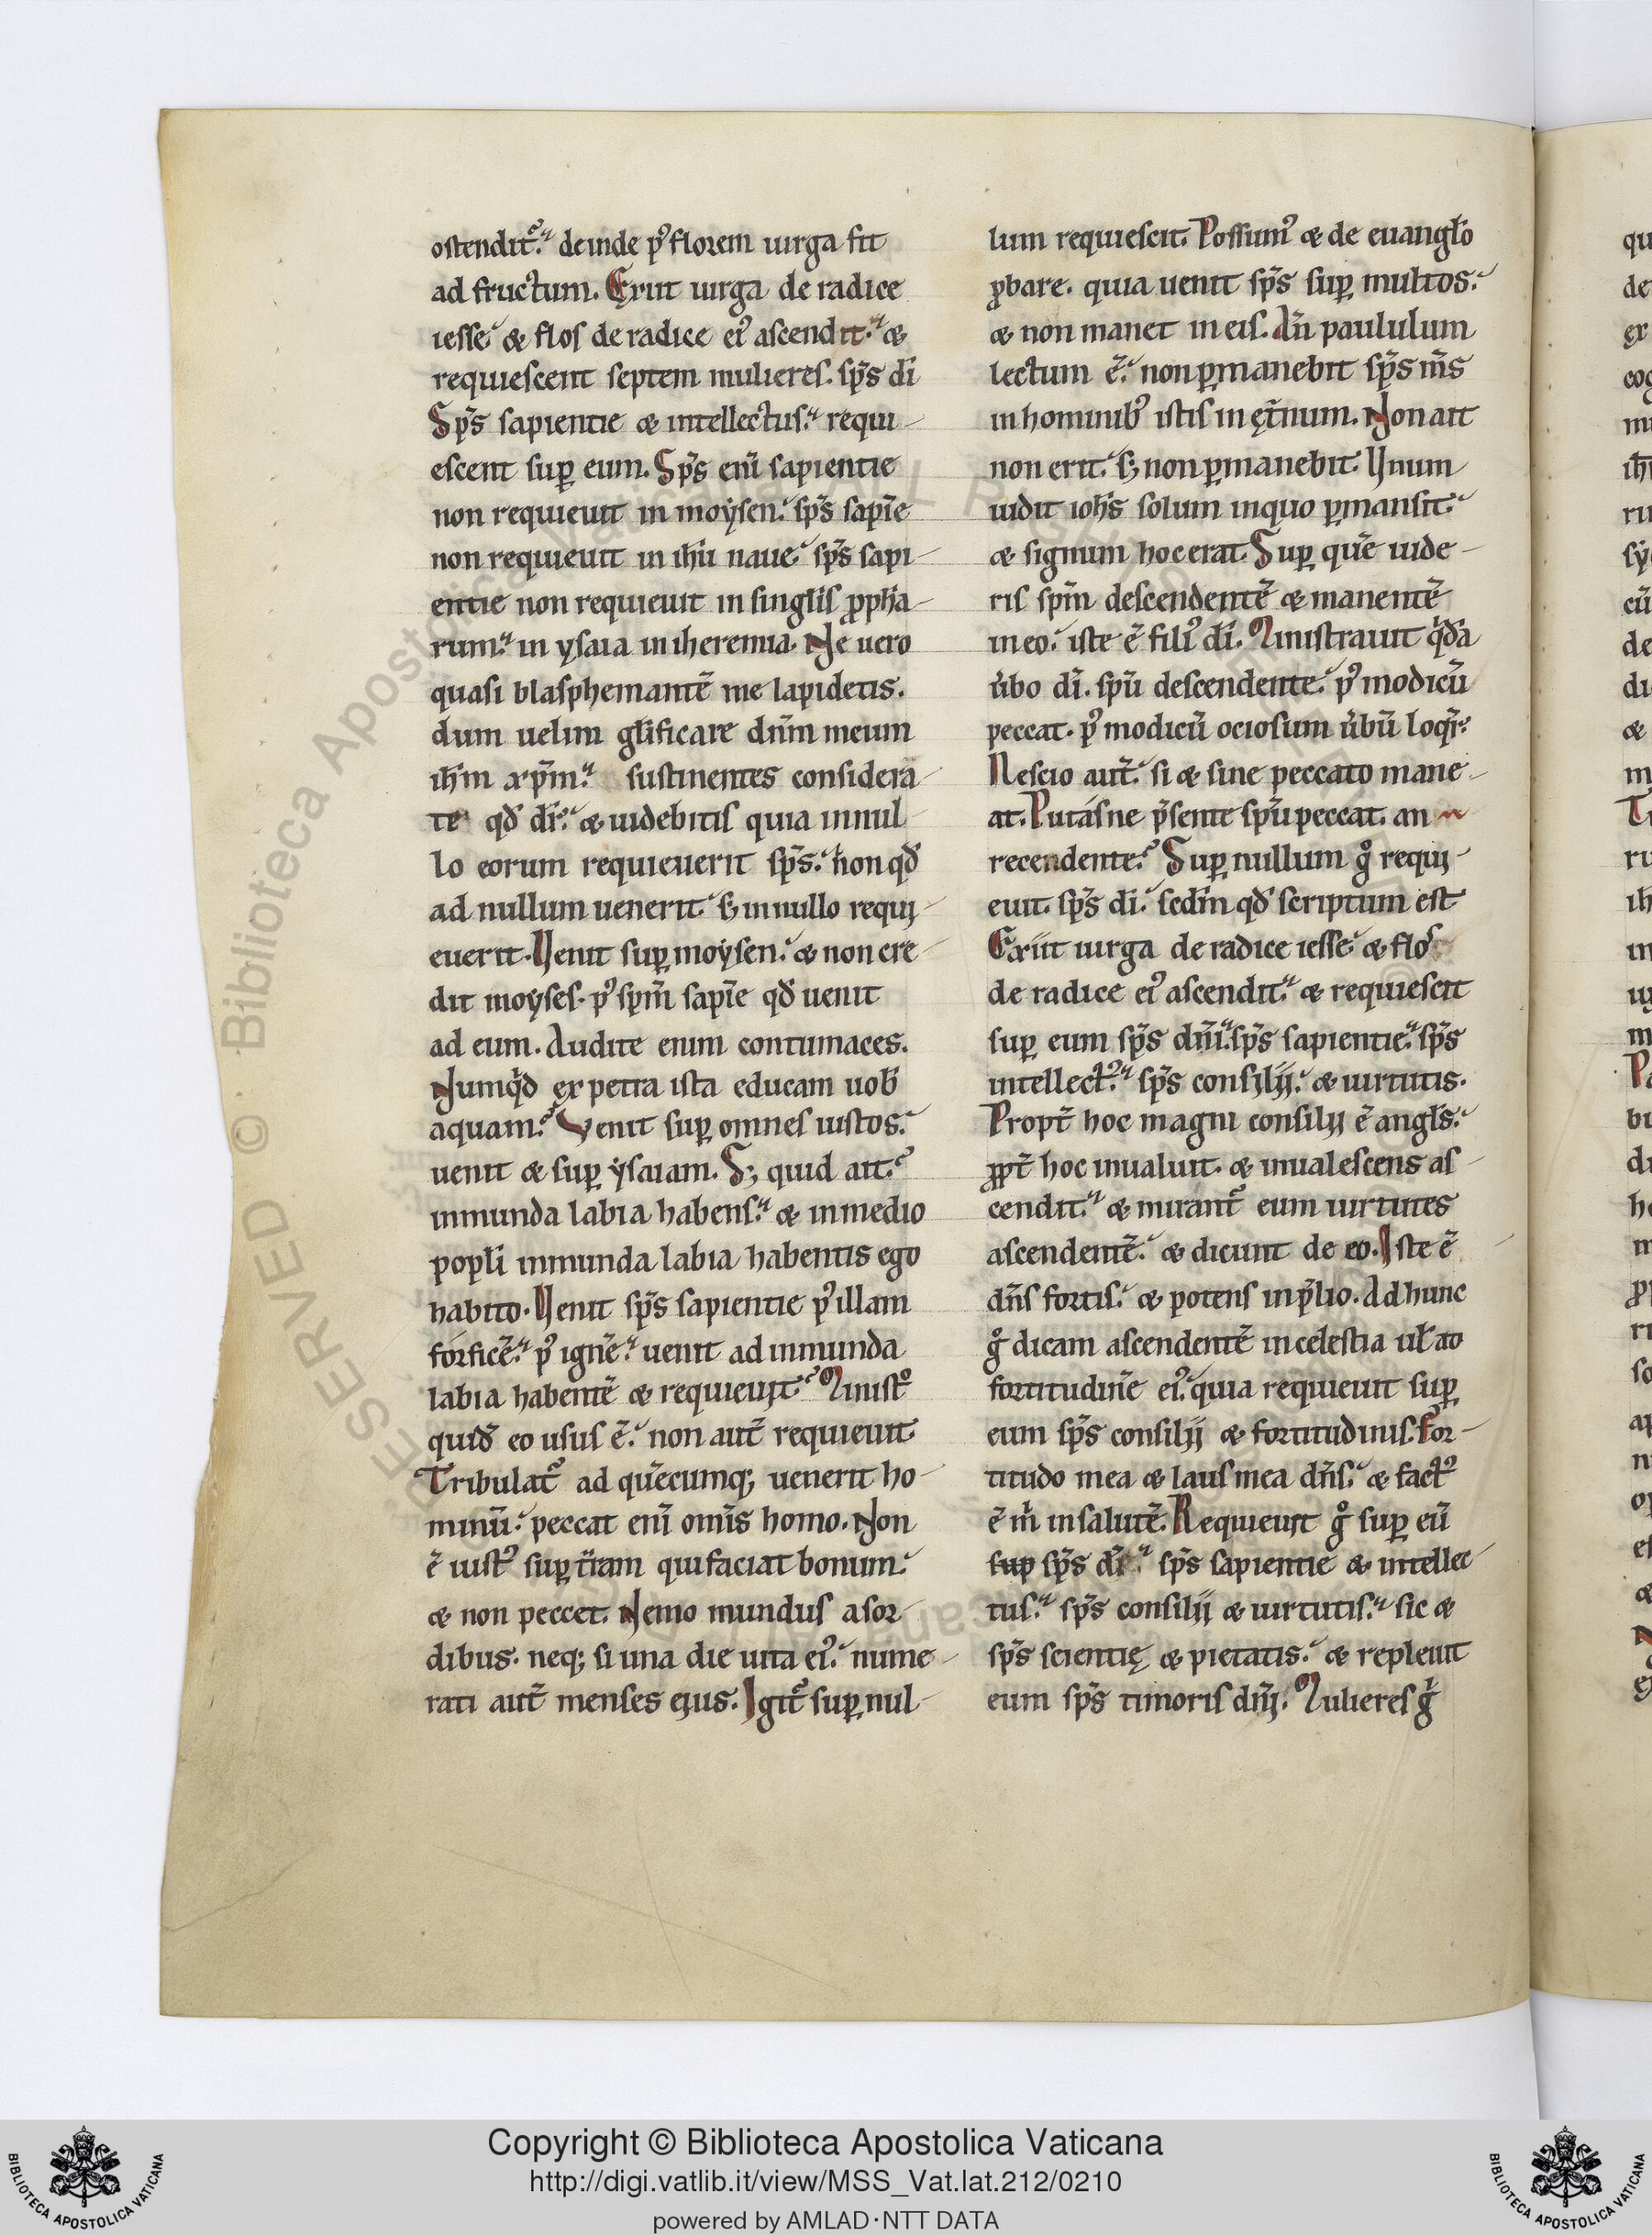 ostendit᷑. deinde p᷒ florem uirga fit
ad fructum. Exiit uirga de radice
iesse & flos de radice ei᷒ ascendit. &
requiescent septem mulieres. sp̄s dī
Sp̄s sapientie & intellectus. requi-
escent suꝑ eum. Sp̄s enī sapientie
non requieuit in moẏsen. sp̄s sapīe
non requieuit in ih̄u naue. sp̄s sapi-
entie non requieuit in singłis ꝓpħa-
rum. in ysaia in iheremia. Ne uero
quasi blasphemantē me lapidetis.
dum uelim głificare dn̄m meum
ih̄m xp̄m. sustinentes considera-
te qđ dr̄. & uidebitis quia in nul-
lo eorum requieuerit sp̄s. non qđ
ad nullum uenerit. sꝫ in nullo requi-
euerit. Uenit suꝑ moẏsen. & non cre-
dit moẏses. p᷒ sp̄m sapīe qđ uenit
ad eum. Audite enim contumaces.
Numqͥd ex petra ista educam uob̄
aquam? Venit suꝑ omnes iustos.
uenit & suꝑ ẏsaiam. Sꝫ quid ait?
inmunda labia habens. & in medio
popłi inmunda labia habentis ego
habito. Uenit sp̄s sapientie p᷒ illam
forficē. p᷒ ignē. uenit ad inmunda
labia habentē & requieuit? Ministͦ
quiđ eo usus ē. non aut̄ requieuit
Tribulat᷑ ad quēcumqꝫ uenerit ho-
minū. peccat enī omīs homo. Non
ē iust᷒ suꝑ t̄ram qui faciat bonum.
& non peccet. Nemo mundus a sor-
dibus. neqꝫ si una die uita ei᷒. nume-
rati aut̄ menses ejus. Igit᷑ suꝑ nul-
lum requiescit. Possum᷒ & de euangł̄o
ꝓbare. quia uenit sp̄s suꝑ multos.
& non manet in eis. An̄ paululum
lectum ē. non ꝑmanebit sp̄s m̄s
in hominib᷒ istis in ęt̄num. Non ait
non erit. sꝫ non ꝑmanebit. Unum
uidit ioħs solum in quo ꝑmansit.
& signum hoc erat. Suꝑ quē uide-
ris sp̄m descendentē & manentē
in eo. iste ē fili᷒ dī. Ministrauit qͥđa
ūbo dī. spū descendente. p᷒ modicū
peccat. p᷒ modicū ociosum ūbū loqr̄.
Nescio aut̄. si & sine peccato mane-
at. Putásne p̄sente spū peccat. an
recendente? Suꝑ nullum gͦ requi-
euit sp̄s dī. secđm qđ scriptum est
Exiit uirga de radice iesse & flos
de radice ei᷒ ascendit. & requiescit
suꝑ eum sp̄s dn̄i. sp̄s sapientie. sp̄s
intellect᷒. sp̄s consilij. & uirtutis.
Propt̄ hoc magni consilij ē angłs.
ꝓpt̄ hoc inualuit. & inualescens as-
cendit. & mirant᷑ eum uirtutes
ascendentē. & dicunt de eo. Iste ē
dn̄s fortis. & potens in p̄lio. Ad hunc
gͦ dicam ascendentē in celestia uł ao
fortitudinē ei᷒. quia requieuit suꝑ
eum sp̄s consilij & fortitudinis. For-
titudo mea & laus mea dn̄s. & fact᷒
ē mͥ in salutē. Requieuit gͦ suꝑ eū
sup sp̄s dī. sp̄s sapientie & intellec-
tus. sp̄s consilij & uirtutis. sic &
sp̄s scientię & pietatis. & repleuit
eum sp̄s timoris dn̄j. Mulieres gͦ
Copyright © Biblioteca Apostolica Vaticana
http://digi.vatlib.it/view/MSS_Vat.lat.212/0210
powered by AMLAD·NTT DATA
BIBLIOTECA APOSTOLICA VATICANA
BIBLIOTECA APOSTOLICA VATICANA